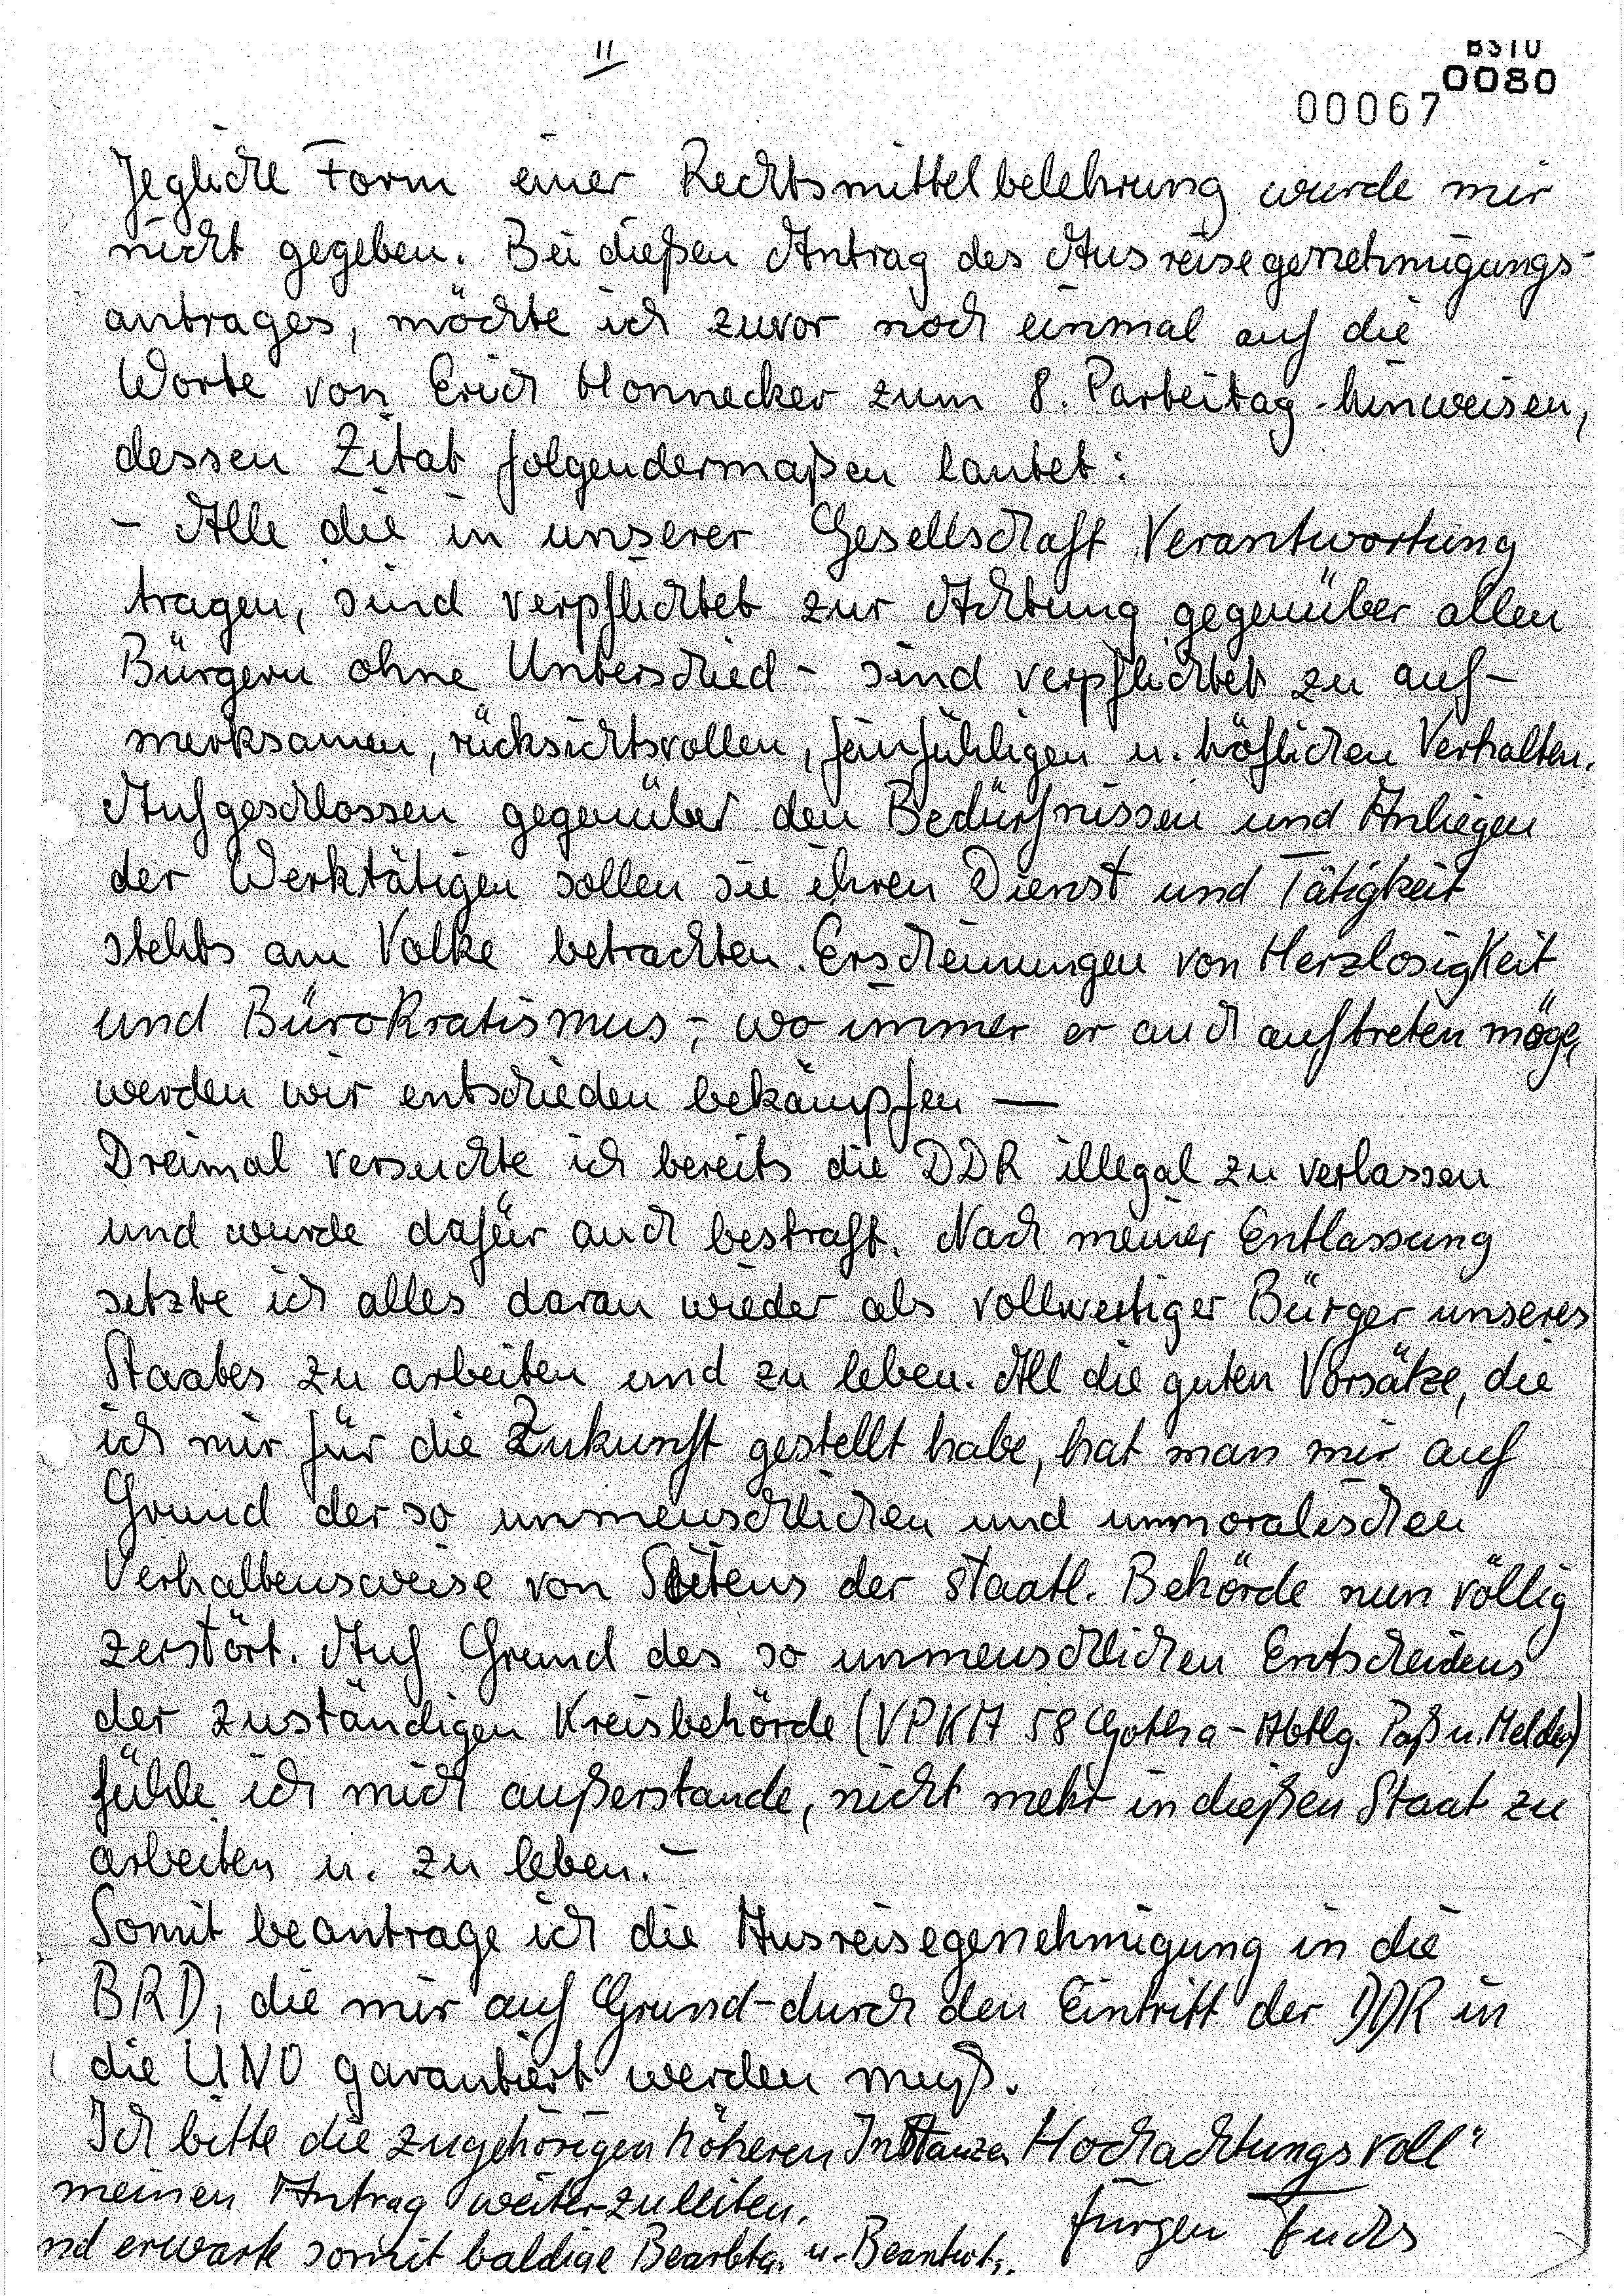 II
BSTU
0080
00067
Jegliche Form einer Rechtsmittelbelehrung wurde mir
nicht gegeben. Bei dießen Antrag des Ausreisegenehmigungs-
antrages, möchte ich zuvor noch einmal auf die
Worte von Erich Honnecker zum 8. Parteitag hinweisen,
dessen Zitat folgendermaßen lautet:
- Alle die in unserer Gesellschaft Verantwortung
tragen, sind verpflichtet zur Achtung gegenüber allen
Bürgern ohne Unterschied - sind verpflichtet zu auf-
merksamen, rücksichtsvollen, feinfühligen u. höflichen Verhalten.
Aufgeschlossen gegenüber den Bedürfnissen und Anliegen
der Werktätigen sollen sie ihren Dienst und Tätigkeit
stehts am Volke betrachten. Erscheinungen von Herzlosigkeit
und Bürokratismus, - wo immer er auch auftreten möge,
werden wir entschieden bekämpfen —
Dreimal versuchte ich bereits die DDR illegal zu verlassen
und wurde dafür auch bestraft. Nach meiner Entlassung
setzte ich alles daran wieder als vollwertiger Bürger unseres
Staates zu arbeiten und zu leben. All die guten Vorsätze, die
ich mir für die Zukunft gestellt habe, hat man mir auf
Grund der so unmenschlichen und unmoralischen
Verhaltensweise von Seitens der staatl. Behörde nun völlig
zerstört. Auf Grund des so unmenschlichen Entscheidens
der zuständigen Kreisbehörde (VPKA 58 Gotha - Abtlg. Paß u. Meldew)
fühle ich mich außerstande, nicht mehr in dießen Staat zu
arbeiten u. zu leben. -
Somit beantrage ich die Ausreisegenehmigung in die
BRD, die mir auf Grund - durch den Eintritt der DDR in
die UNO garantiert werden muß.
Ich bitte die zugehörigen höheren Instanzen Hochachtungsvoll"
meinen Antrag weiterzuleiten,
nd erwarte somit baldige Bearbtg. u. Beantwt.
Jürgen Fuchs